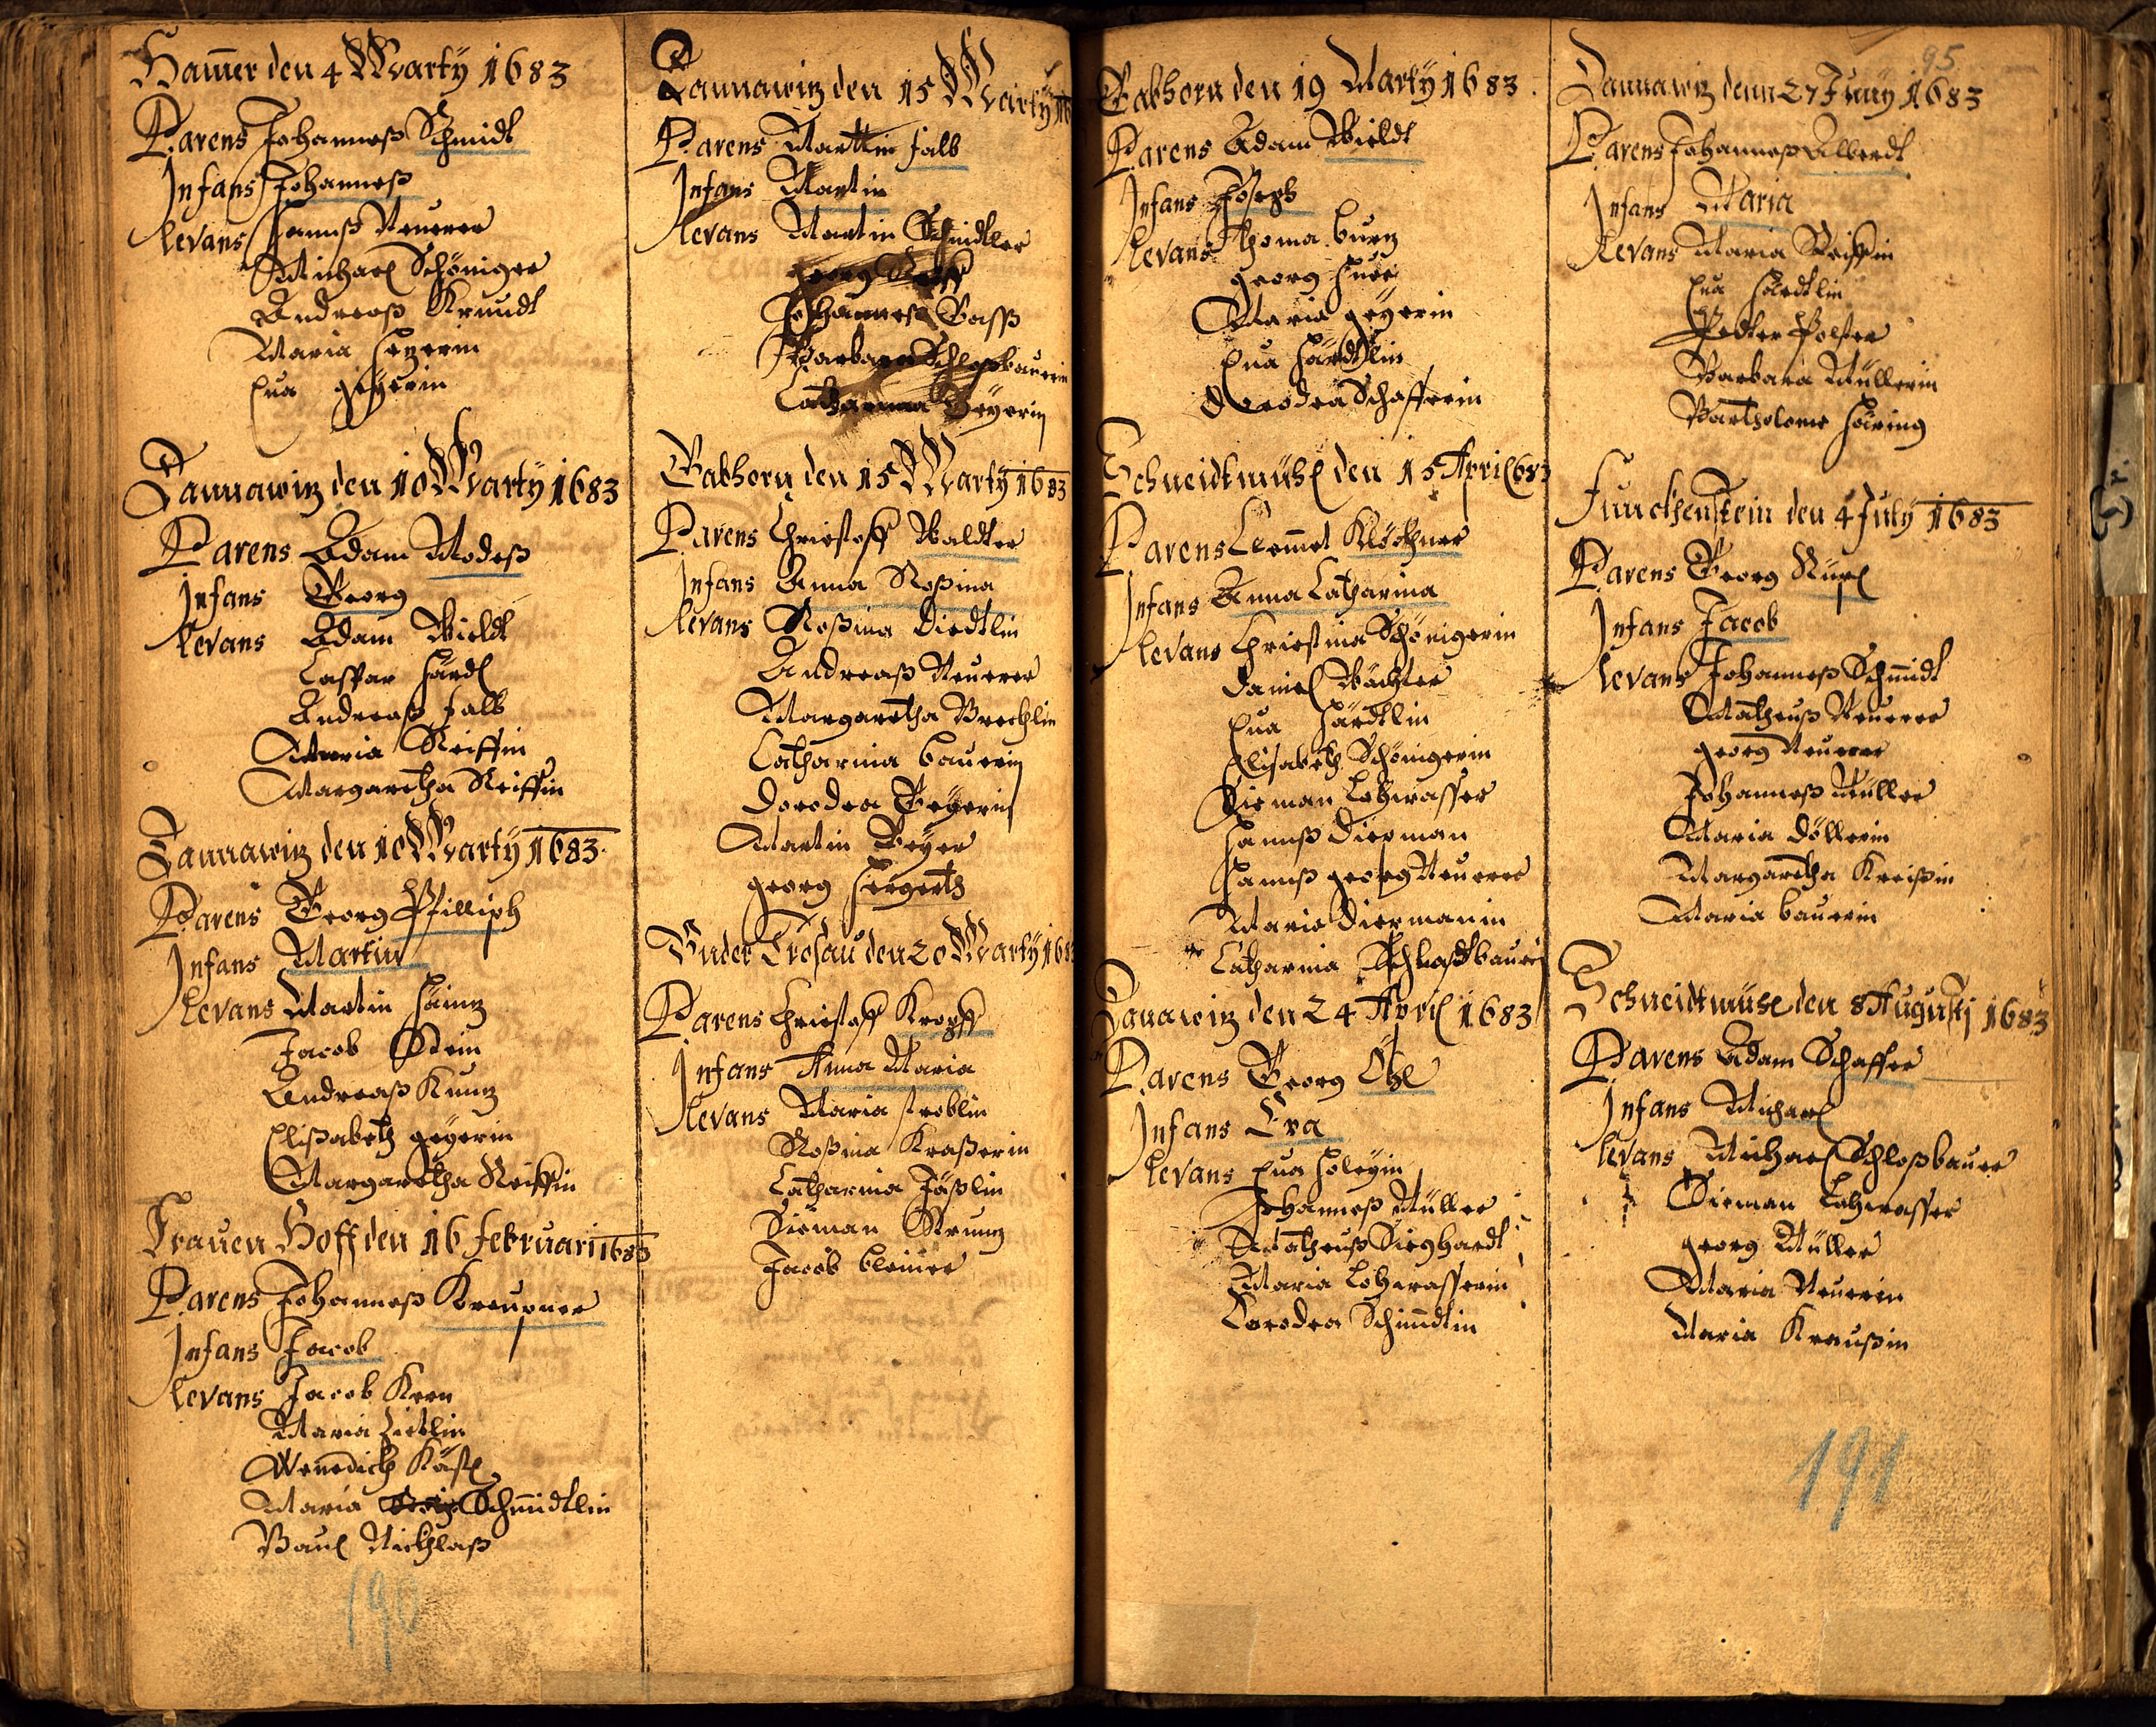 Hamer den 4 Marty 1683
Parens Johanneß Schmidt
Infans Johanneß
levans Hannß Neuerer
Michael Schöniger
Andreaß Kruudt
Maria Hegerin
Eva geyerin
Dannawitz den 10 Marty 1683
Parens Adam Modeß
Infans Georg
levans Adam Wieldt
Caspar Härdl
Andreaß Falb
Maria Reiffin
Margaretha Reiffin
Dannawitz den 10 Marty 1683
Parens Georg Pfilliph
Infans Martin
levans Martin Häintz
Jacob Stein
Andreaß Kuntz
Elisabeth geyerin
Margaretha Reiffin
Frauen Hoff den 16 februari 1683
Parens Johanneß
Infans Jacob
levans Jacob Kern
Maria Lieblin
Wenedich Käßl
Maria Schmidtlin
Baul Nicklaß
Dannawitz den 15 Marty 16
Parens Marttin Falb
Infans Martin
levans Martin Schindtler
Georg
Johanneß Baßß
Barbara Schloßbauerin
Catharina Beyerin
Gabhorn den 15 Marty 1683
Parens Christoff Waldter
Infans Anna Roßina
levans Roßina Diedtlin
Andreaß Neuerer
Margaretha Brechlin
Catharina bauerin
Dorodea Geyerin
Martin Beyer
georg Hergerth
Under Trosau den 20 Marty 168
Parens Christoff Kropff
Infans Anna Maria
levans Maria stroblin
Roßina Kraßerin
Catharina Jäßlin
Sieman Strunz
Jacob bleiner
Gabhorn den 19 Marty 1683
Parens Adam Wieldt
Infans Joseph
levans Thoma burtz
georg
Maria geyerin
Eva Härdtlin
Dorodea Schafferin
Schneidtmühl den 15 April 683
Parens Clemmet Klöckner
Infans Anna Catharina
levans Christina Schönigerin
Daniel Wächter
Eva Härdtlin
Elisabeth Schönigerin
Sieman Lohwasser
Hannß Dierman
Hannß georg Neuerer
Maria Diermanin
Catharina Schloßbaueri
Danawitz den 24 April 1683
Parens Georg Öhl
Infans Eva
levans Eva Holeyin
Johanneß Müller
Matheuß Sieghardt
Maria Lohwasserin
Dorodea Schmidtin
95
Dannawitz denn 27 Juny 1683
Parens Johanneß Alberdt
Infans Maria
levans Maria Reiffin
Eva Härdtlin
Pedter Polster
Barbara Müllerin
Bartholome Häring
Funckhenstein den 4 July 1683
Parens Georg
Infans Jacob
levans Johanneß Schmidt
Matheuß Neuerer
georg Neuerer
Johanneß Müller
Maria Döllerin
Margaretha Kreißin
Maria bauerin
Schneidtmühl den 8 Augusti 1683
Parens Adam Schaffer
Infans Michael
levans Michael Schloßbauer
Sieman Lohwasser
georg Müller
Maria Neuerin
Maria Kraußin
190
191